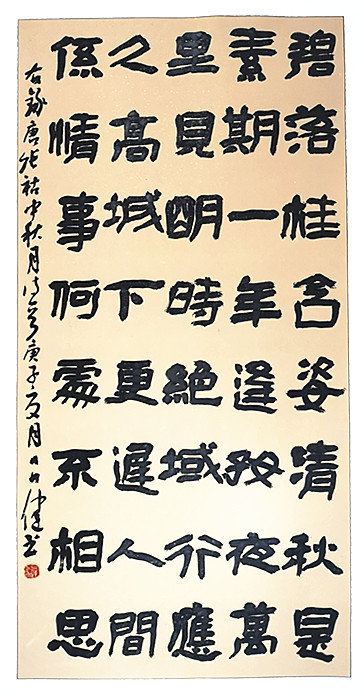 碧落桂含姿清秋是
素期一年逢好夜萬
里見明時絕域行應
久高城下更遲人間
係情事何處不相思
右錄唐張祜中秋月詩庚子夏月健书